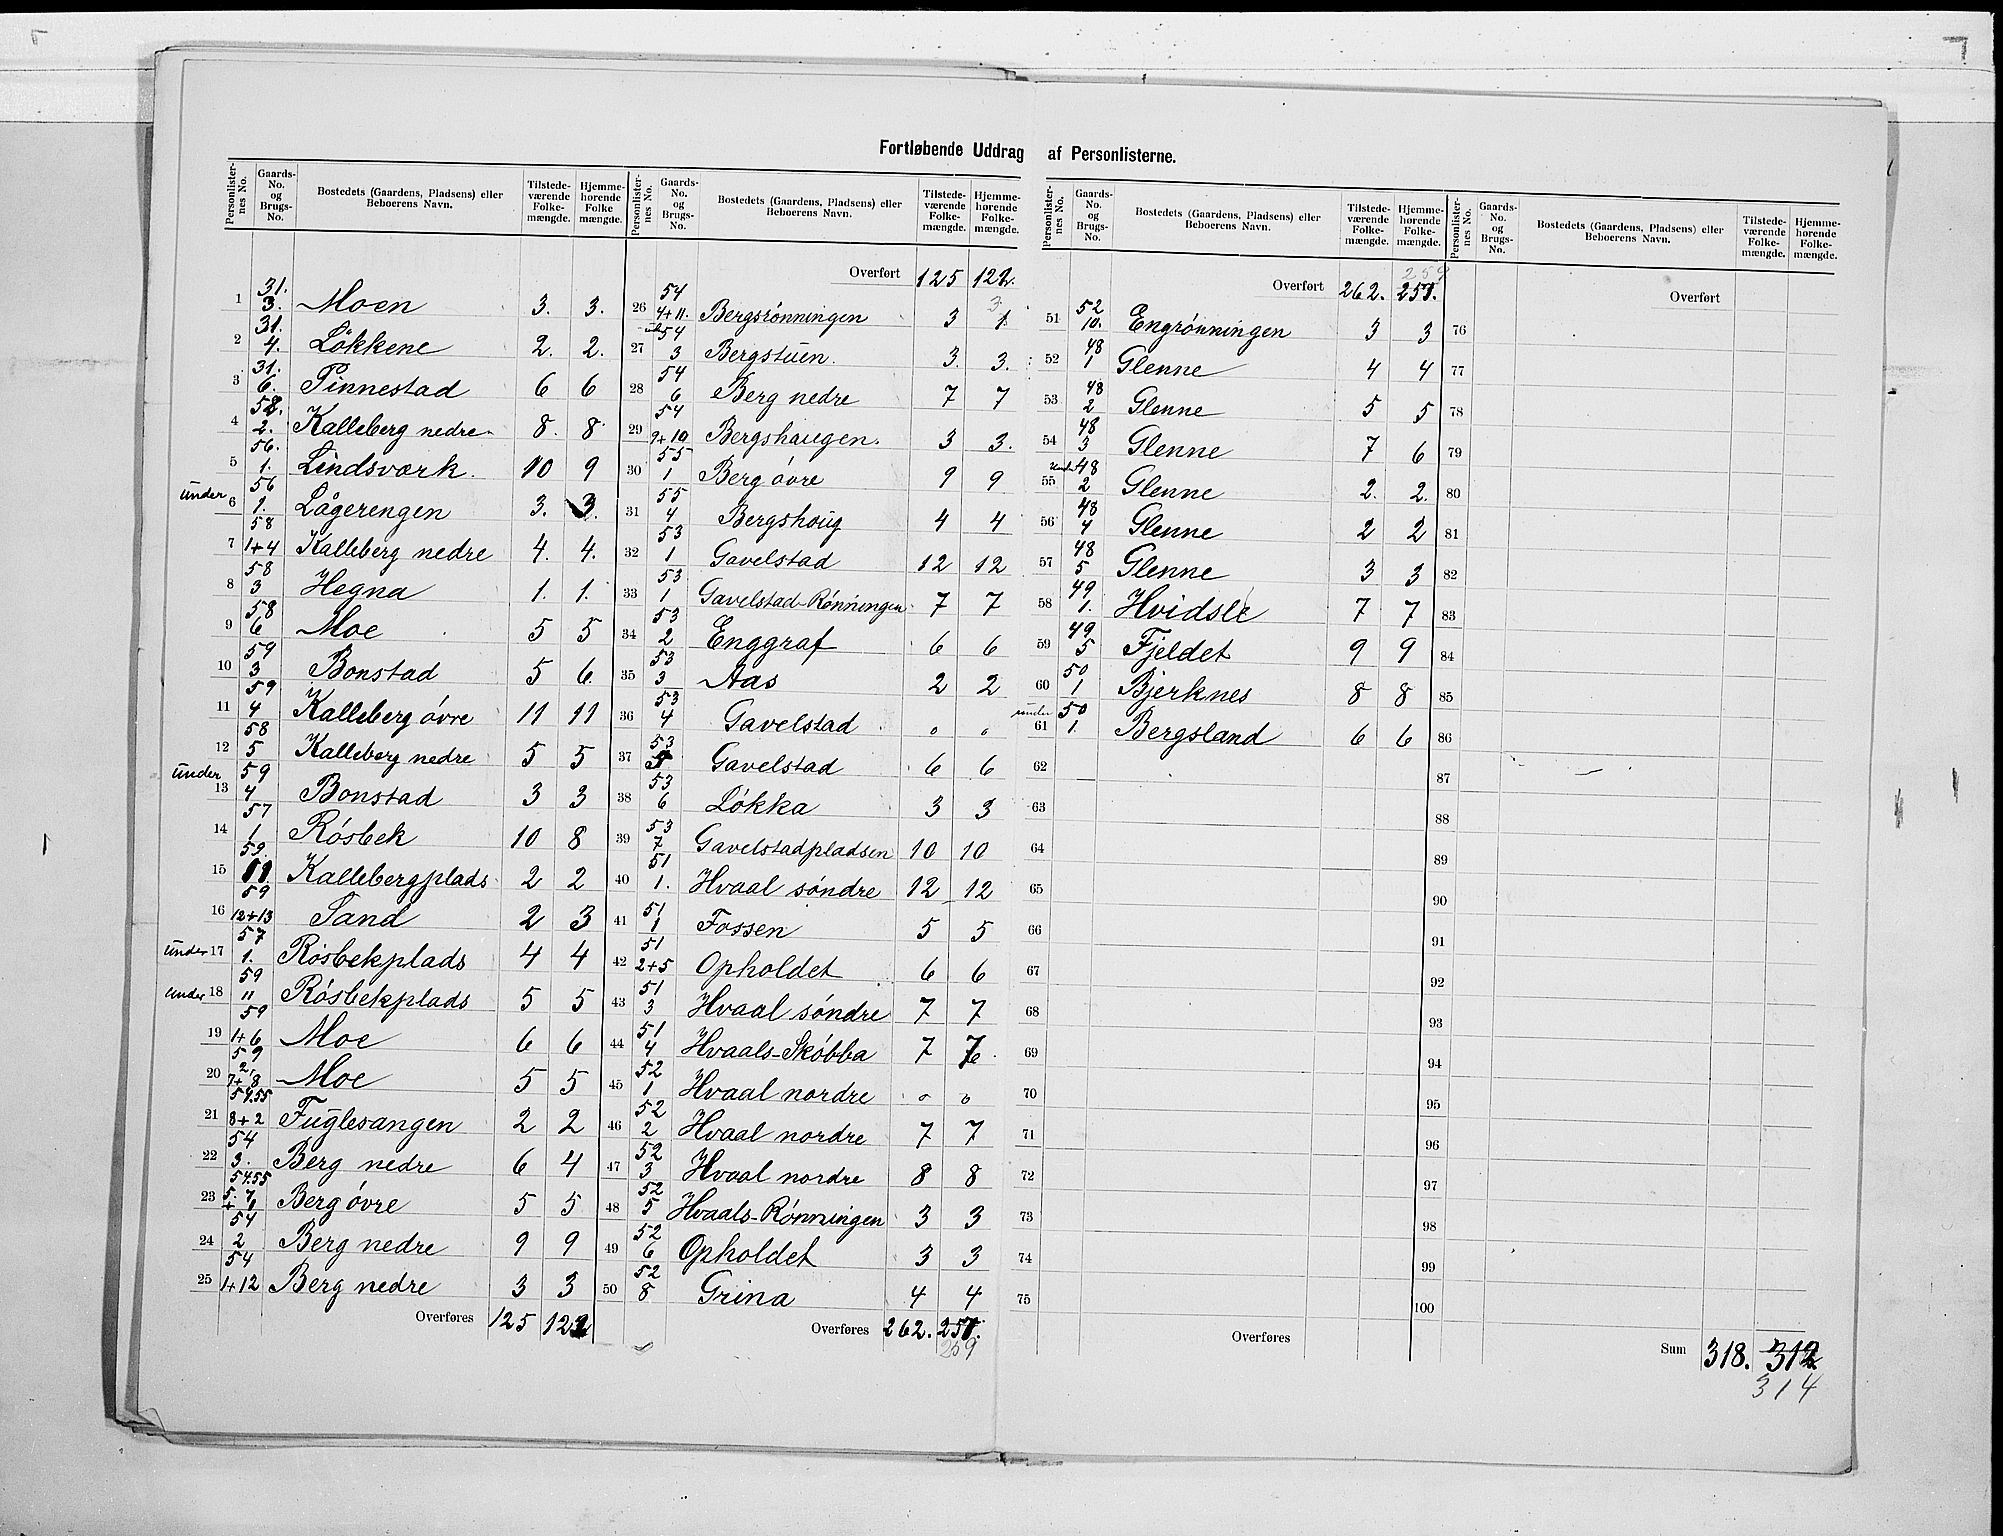 Fortløbende Uddrag af Personlisterne.
Personlister-nes No. | Gaards-No. og Brugs-No. | Bostedets (Gaardens, Pladsens) eller Beboerens Navn. | Tilstede-værende Folke-mængde. | Hjemme-hørende Folke mængde.
1 31. 3. Moen 3. 3.
2 31. 4. Løkkene 2. 2.
3 31. 6. Pinnestad 6 6
4 58. 2. Kalleberg nedre 8. 8.
5 56. 1. Lindsværk. 10 9
under 6 56 1. Lågerengen 3. 3.
7 58 1+4 Kalleberg nedre 4. 4.
8 58 3 Hegna 1. 1.
9 58 6 Moe 5 5
10 59 3 Bonstad 5 6
11 59 4 Kalleberg øvre 11 11
12 58 5 Kalleberg nedre 5 5
under 13 59 4 Bonstad 3 3
14 57 1 Røsbek 10 8
15 59. 11 Kallebergplads 2 2
16 59 12+13 Sand 2 3
under 17 57 1. Røsbekplads 4 4
under 18 59 11 Røsbekplads 5 5
19 59 1+6 Moe 6 6
20 59 2, 7+8 Moe 5 5
21 54.55 8+2 Fuglesangen 2 2
22 54 3. Berg nedre 6 4
23 54.55 5. 7 + 6 Berg øvre 5 5
24 54 2 Berg nedre 9 9
25 54 1+12 Berg nedre 3 3
Overføres 125 122
Personlister-nes No. | Gaards-No. og Brugs-No. | Bostedets (Gaardens, Pladsens) eller Beboerens Navn. | Tilstede-værende Folke-mængde. | Hjemme-hørende Folke-mængde.
Overført 125 122.
26 54 4+11. Bergsrønningen 3 1 3
27 54 3 Bergstuen. 3. 3.
28 54 6 Berg nedre 7 7
29 54 9+10 Bergshaugen. 3 3.
30 55 1 Berg øvre 9 9
31 55 4 Bergshoug 4 4
32 53 1 Gavelstad 12 12
33 53 1 Gavelstad-Rønningen 7 7
34 53 2 Enggraf 6 6
35 53 3 Aas 2 2
36 53 4 Gavelstad 0 0
37 53 5 Gavelstad 6 6
38 53 6 Løkka 3 3
39 53 7 Gavelstadpladsen 10 10
40 51 1. Hvaal søndre 12 12
41 51 1 Fossen 5 5
42 51 2+5 Opholdet 6 6
43 51 3 Hvaal søndre 7 7
44 51 4 Hvaals-Skøbba 7
45 52 1 Hvaal nordre 0 0
46 52 2 Hvaal nordre 7 7
47 52 3 Hvaal nordre 8 8
48 52 5 Hvaals-Rønningen 3 3
49 52 6 Opholdet 3 3
50 52 8 Grina 4 4
Overføres 262. 257.
259
Personlister-nes No. | Gaards-No. og Brugs-No. | Bostedets (Gaardens, Pladsens) eller Beboerens Navn. | Tilstede-værende Folke-mængde. | Hjemme-hørende Folke-mængde.
259
Overført 262. 257.
51 52 10. Engrønningen 3 3
52 48 1 Glenne 4 4
53 48 2 Glenne 5 5
54 48 3 Glenne 7 6
under 55 48 2 Glenne 2. 2.
56 48 4 Glenne 2 2
57 48 5 Glenne 3 3
58 49 1. Hvidsle 7 7
59 49 5 Fjeldet 9 9
60 50 1 Bjerknes 8 8
under 61 50 1. Bergsland 6 6
62
63
64
65
66
67
68
69
70
71
72
73
74
75
Overføres
Personlister-nes No. | Gaards-No. og Brugs-No. | Bostedets (Gaardens, Pladsens) eller Beboerens Navn. | Tilstede-værende Folke-mængde. | Hjemme-hørende Folke-mængde.
Overført
76
77
78
79
80
81
82
83
84
85
86
87
88
89
90
91
92
93
94
95
96
97
98
99
100
Sum 318. 312
314